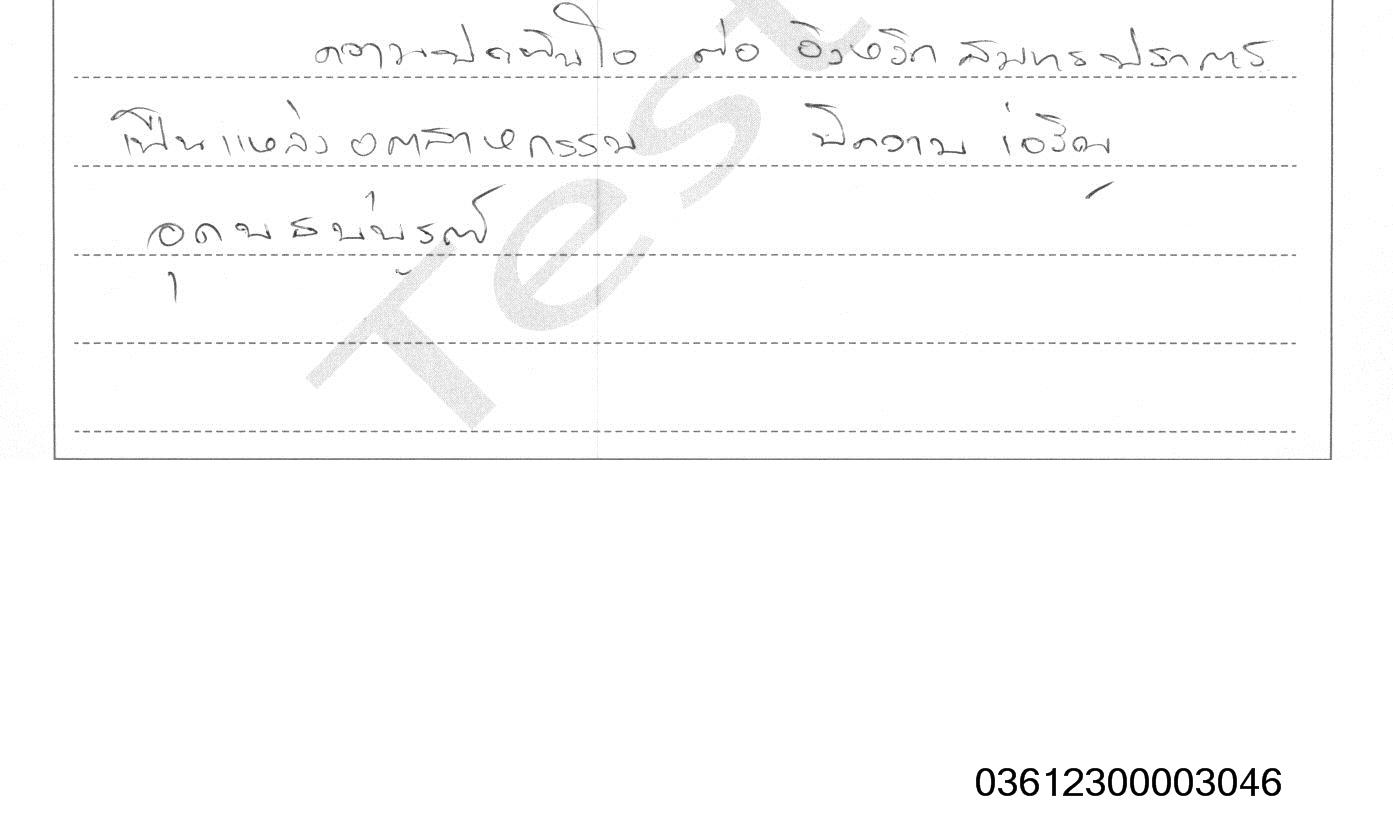 ความประทับใจ ต่อ จังหวัด สมุทรปราการ
เป็นแหล่ง อุตสาหกรรม มีความ เจริญ
อุดมสมบูรณ์
Test
03612300003046